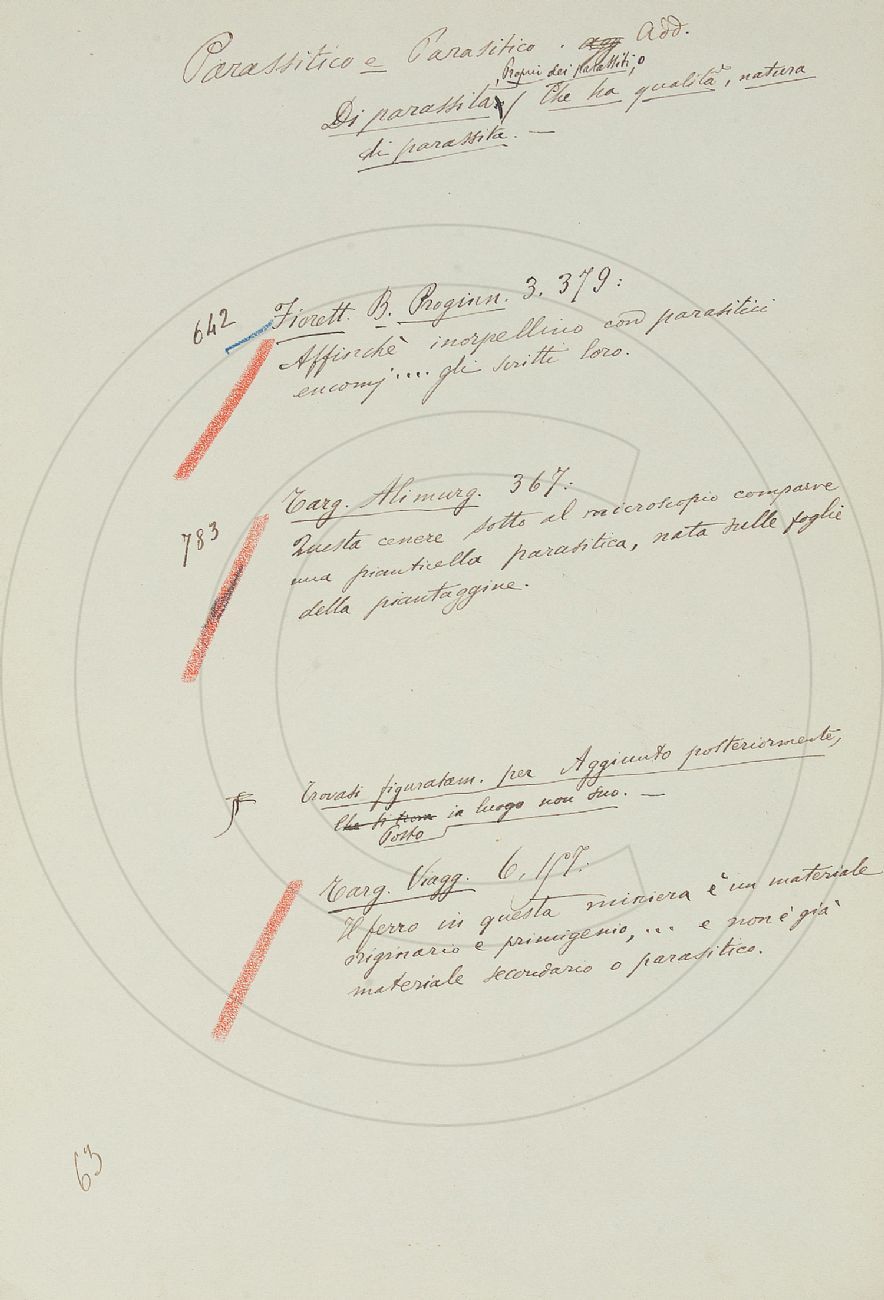 Parassitico e Parasitico. Add.
, Propri dei parassiti, o
Di parassita, Che ha qualità, natura
di parassita. —
642 Fiorett. B. Proginn. 3. 379:
Affinchè inorpellino con parasitici
encomj.... gli scritti loro.
783 Targ. Alimurg. 367:
Questa cenere sotto al microscopio comparve
una pianticella parasitica, nata sulle foglie
della piantaggine.
Trovasi figuratam. per Aggiunto posteriormente,
Che si trova in luogo non suo. —
Posto
Targ. Viagg. 6, 157:
Il ferro in questa miniera è un materiale
originario e primigenio,... e non è già
materiale secondario o parasitico.
63